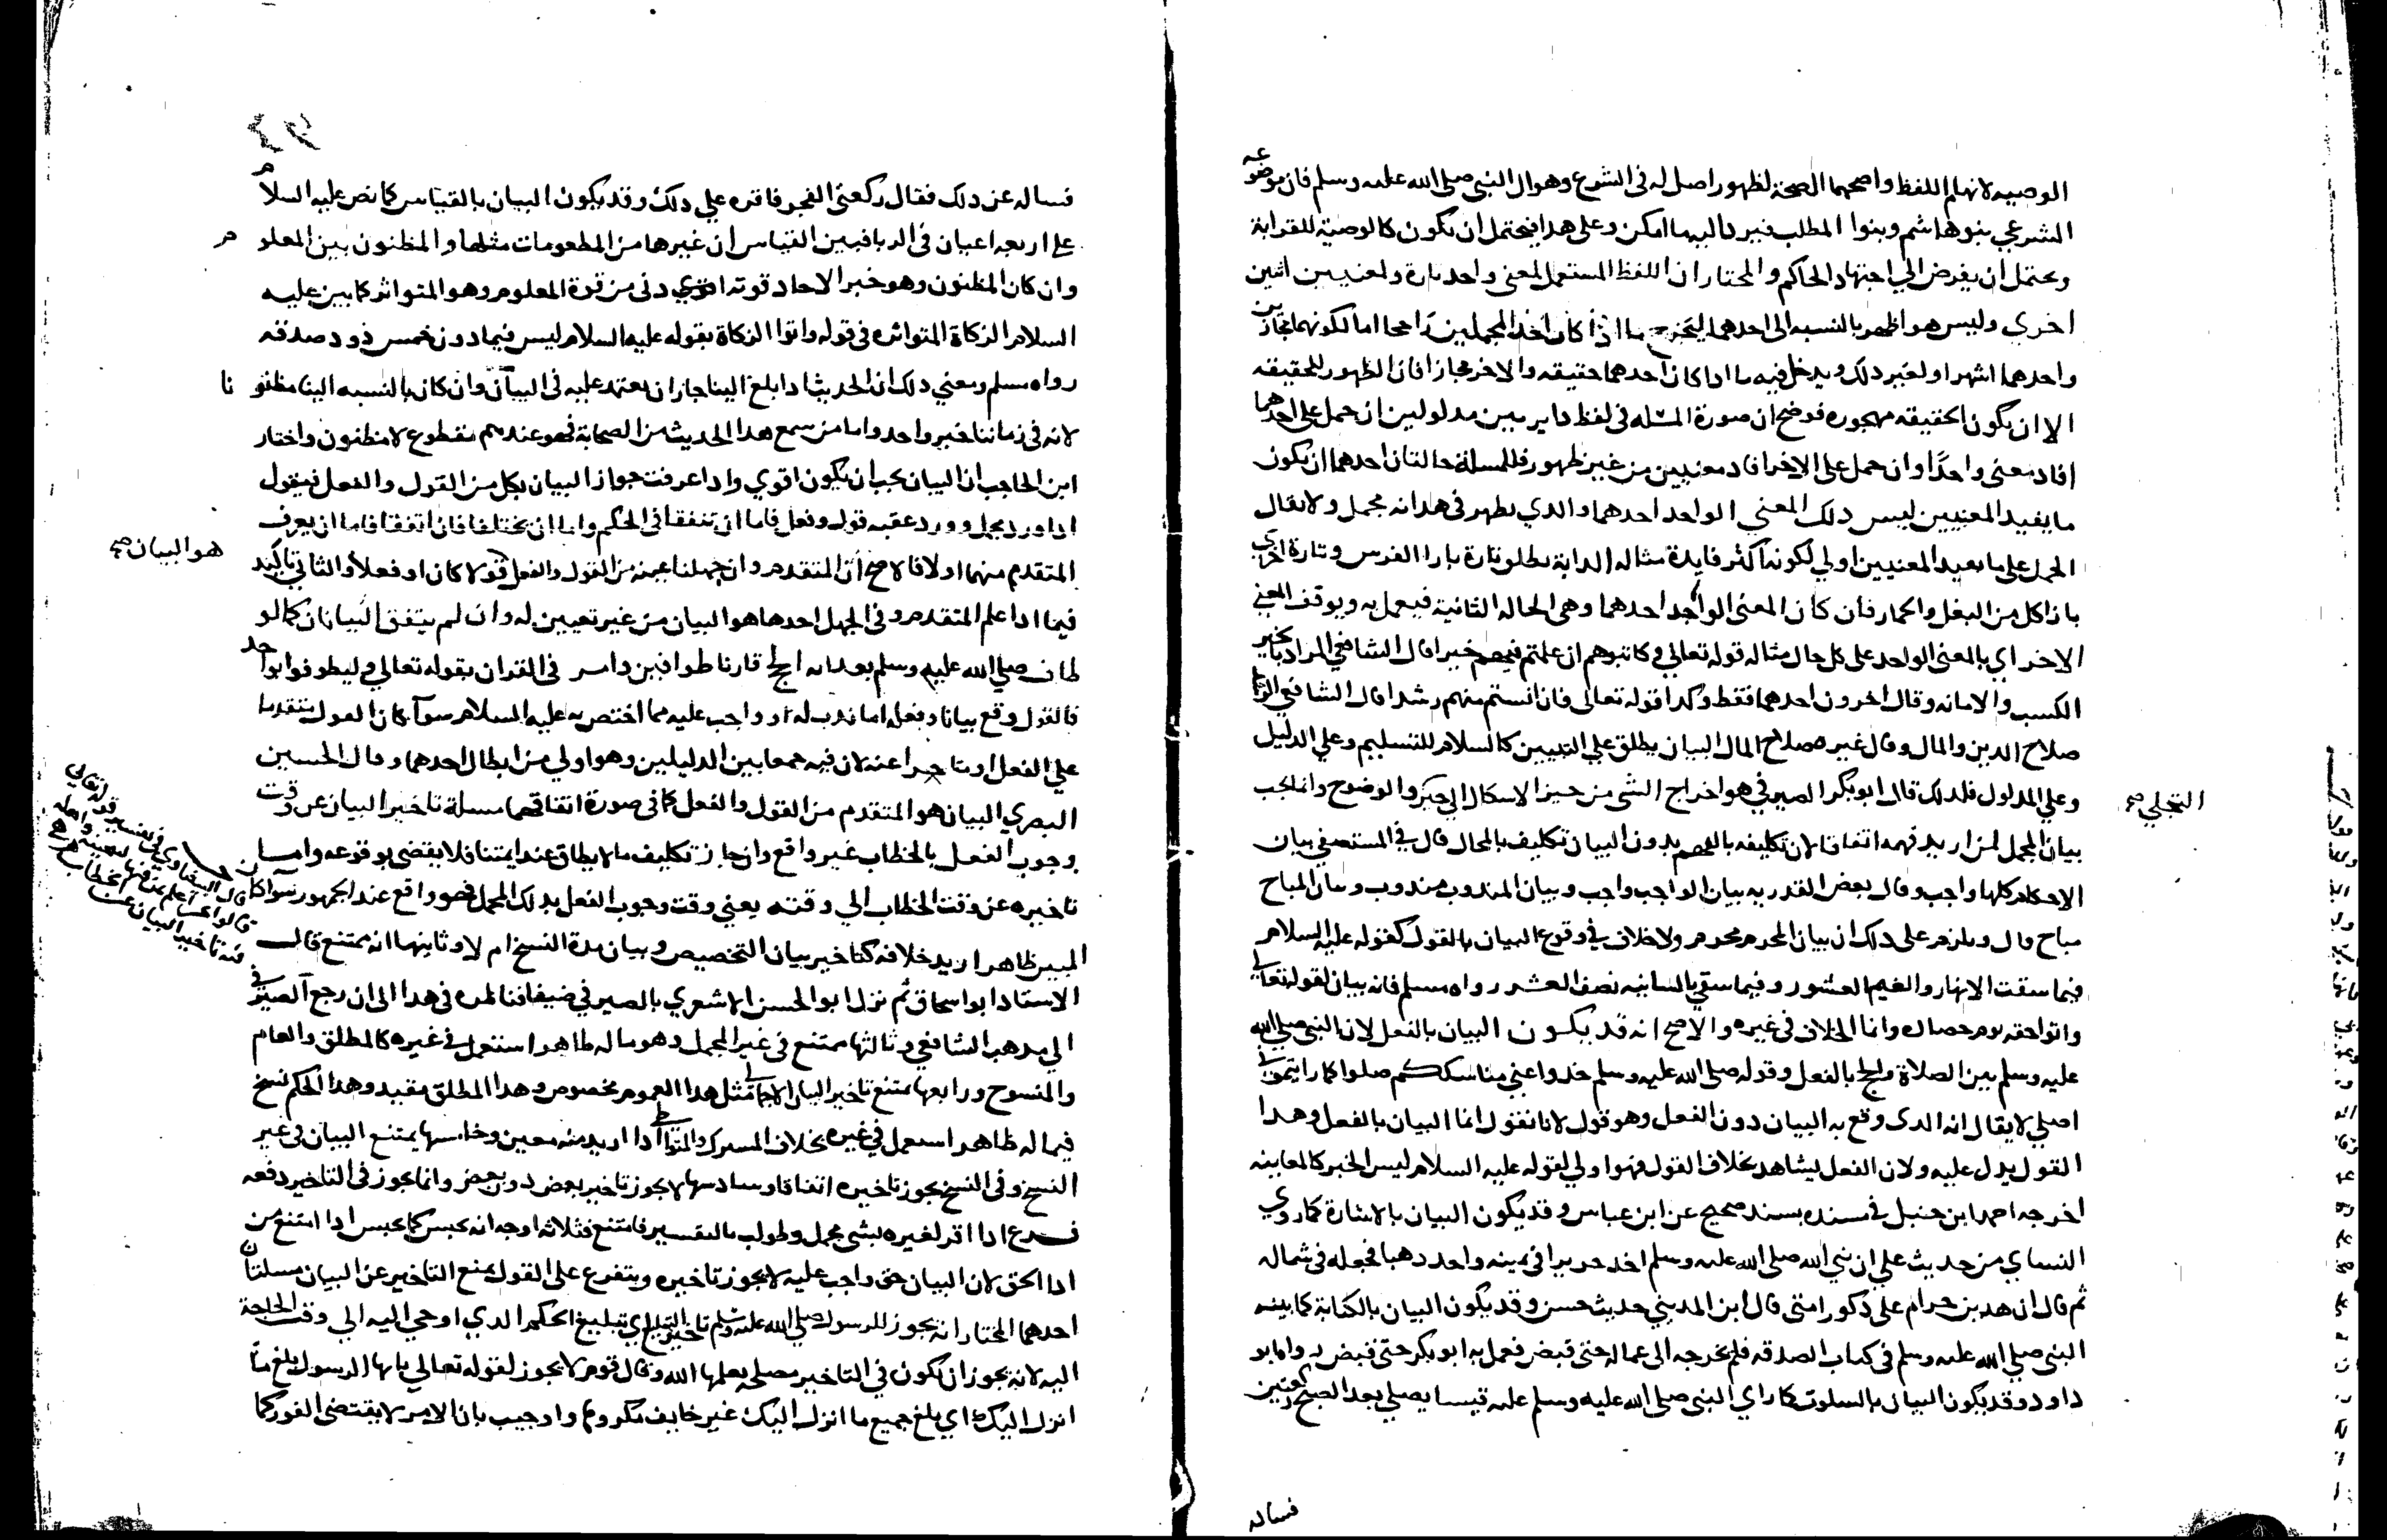 الوصيه لانهام اللفظ واصحهما الصحة لظهور اصل له في الشرع وهو ال النبي صلى الله عليه وسلم فان موضوعه
الشرعي بنوا هاشم وبنوا المطلب فيرد اليه ما امكن وعلى هذا فيحتمل ان يكون كالوصية للقرابة
ويحتمل ان يفوض الي اجتهاد الحاكم والمختار ان اللفظ المستعمل لمعنى واحد تارة ولمعنيين اثنين
اخري وليس هو اظهر بالنسبه الى احدهما ليخرج ما اذا كان احد المجملين راجحا اما لكونهما مجازين
واحدهما اشهر او لغير ذلك ويدخل فيه ما اذا كان احدهما حقيقه والاخر مجازا فان الظهور للحقيقه
الا ان يكون الحقيقه مهجوره فوضح ان صورة المسئله في لفظ داير بين مدلولين ان حمل على احدهما
افاد معنى واحدًا وان حمل على الاخر افاد معنيين من غير ظهور فللمسئلة حالتان احدهما ان يكون
ما يفيد المعنيين ليس ذلك المعني الواحد احدهما والذي يظهر في هذا انه مجمل ولا يقال
الحمل على ما يفيد المعنيين اولي لكونه اكثر فايدة مثاله الدابة يطلق تارة بازا الفرس وتارة اخري
بازا كل من البغل والحمار فان كان المعنى الواحد احدهما وهي الحالة الثانية فيعمل به ويوقف المعني
الاخر اي بالمعنى الواحد على كل حال مثاله قوله تعالى فكاتبوهم ان علمتم فيهم خيرا قال الشافعي المراد بالخير
الكسب والامانه وقال اخرون احدهما فقط وكذا قوله تعالى فان انستم منهم رشدا قال الشافعي الرشد
صلاح الدين والمال وقال غيره صلاح المال البيان يطلق علي التبيين كالسلام للتسليم وعلي الدليل
وعلي المدلول فلذلك قال ابو بكر الصيرفي هو اخراج الشي من حيز الاشكال الى حيز والوضوح وانما يجب
التجلي صح
بيان المجمل لمن اريد فهمه اتفاقا لان تكليفه بالفهم بدون البيان تكليف بالمحال قال في المستصفى بيان
الاحكام كلها واجب وقال بعض القدريه بيان الواجب واجب وبيان المندوب مندوب وبيان المباح
مباح قال ويلزم على ذلك ان بيان المحرم محرم ولا خلاف في وقوع البيان بالقول كقوله عليه السلام
فيما سقت الانهار والغيم العشور وفيما سقي بالسانيه نصف العشر رواه مسلم فانه بيان لقوله تعالى
واتوا حقه يوم حصاده وانما الخلاف في غيره والاصح انه قد يكون البيان بالفعل لان النبي صلى الله
عليه وسلم بين الصلاة والحج بالفعل وقوله صلى الله عليه وسلم خذوا عني مناسككم صلوا كما رايتموني
اصلي لا يقال انه الذي وقع به البيان دون الفعل وهو قول لانا نقول انما البيان بالفعل وهذا
القول يدل عليه ولان الفعل يشاهد بخلاف القول فهو اولي لقوله عليه السلام ليس الخبر كالمعاينه
اخرجه احمد ابن حنبل في مسنده بسند صحيح عن ابن عباس وقد يكون البيان بالاشارة كما روي
النساي من حديث علي ان نبي الله صلى الله عليه وسلم اخذ حريرا في يمينه واخذ ذهبا فجعله في شماله
ثم قال ان هذين حرام على ذكور امتي قال ابن المديني حديث حسن وقد يكون البيان بالكتابة كما بينه
النبي صلى الله عليه وسلم في كتاب الصدقه فلم يخرجه الى عماله حتى قبض فعمل به ابو بكر حتى قبض رواه ابو
داود وقد يكون البيان بالسكوت كما راي النبي صلى الله عليه وسلم عليه قيسا يصلي بعد الصبح ركعتين
فساله
فساله عن ذلك فقال ركعتي الفجر فاقره علي ذلك وقد يكون البيان بالقياس كما نص عليه السلام
على اربعه اعيان في الربا فبين القياس ان غيرها من المطعومات مثلها والمظنون يبين المعلوم
وان كان المظنون وهو خبر الاحاد قوته ادنى من قوة المعلوم وهو المتواتر كما بين عليه
السلام الزكاة المتواتره في قوله واتوا الزكاة بقوله عليه السلام ليس فيما دون خمس ذود صدقه
رواه مسلم ومعني ذلك ان الحديث اذا بلغ الينا جاز ان يعتمد عليه في البيان وان كان بالنسبه الينا مظنونا
لانه في زماننا خبر واحد واما من سمع هذا الحديث من الصحابة فهو عندهم مقطوع لا مظنون واختار
ابن الحاجب ان البيان يجب ان يكون اقوي واذا عرفت جواز البيان بكل من القول والفعل فيقول
اذا ورد مجمل وورد عقبه قول وفعل فاما ان يتفقا في الحكم واما ان يختلفا فان اتفقا فاما ان يعرف
المتقدم منهما اولا فالاصح ان المتقدم وان جهلنا عينه من القول والفعل قولا كان او فعلا والثاني تاكيد
هو البيان صح
فيما اذا علم المتقدم وفي الجهل احدهما هو البيان من غير تعيين له وان لم يتفق البيانان كما لو
طاف صلى الله عليه وسلم بعد اية الحج قارنا طوافين وامر في القران بقوله تعالى وليطوفوا بواحد
فالقول وقع بيانا وفعله اما ندب له او واجب عليه مما اختص به عليه السلام سوآ كان القول متقدما
على الفعل او متاخرا عنه لان فيه جمعا بين الدليلين وهو اولي من ابطال احدهما وقال الحسين
البصري البيان هو المتقدم من القول والفعل كما في صورة اتفاقهما مسئلة تاخير البيان عن وقت
وجوب الفعل بالخطاب غير واقع وان جاز تكليف ما لا يطاق عند ايمتنا فلا يقضى بوقوعه واما
تاخيره عن وقت الخطاب الي وقته يعني وقت وجوب الفعل بذلك المجمل فهو واقع عند الجمهور سوآ كان
قال البيضاوي في تفسير قوله تعالي
المبين ظاهرا اريد خلافه كتاخير بيان التخصيص وبيان مدة النسخ ام لا وثانيها انه ممتنع قال
الاستاد ابو اسحاق ثم نزل ابو الحسن الاشعري بالصيرفي ضيفا فناظره في هذا الى ان رجع الصيرفي
الي مذهب الشافعي وثالثها يمتنع في غير المجمل وهو ما له ظاهر استعمل في غيره كالمطلق والعام
والمنسوخ ورابعها يمتنع تاخير البيان الاجمالي مثل هذا العموم مخصوص وهذا المطلق مقيد وهذا الحكم نسخ
فيما له ظاهر استعمل في غيره بخلاف المشترك والمتواطي اذا اريد منه معين وخامسها يمتنع البيان في غير
النسخ وفي النسخ يجوز تاخيره اتفاقا وسادسها لا يجوز تاخير بعض دون بعض وانما يجوز في التاخير دفعه
فرع اذا اقر لغيره بشي مجمل وطولب بالتفسير فامتنع فثلاثه اوجه انه يحبس كما يحبس اذا امتنع من
ادا الحق لان البيان حق واجب عليه لا يجوز تاخيره ويتفرع على القول بمنع التاخير عن البيان مسئلتان
احدهما المختار انه يجوز للرسول صلى الله عليه وسلم تاخير التبليغ اي تبليغ الحكم الذي اوحي اليه الى وقت الحاجة
اليه لانه يجوز ان يكون في التاخير مصلحة يعلمها الله وقال قوم لا يجوز لقوله تعالي يا ايها الرسول بلغ ما
انزل اليك اي بلغ جميع ما انزل اليك غير خايف مكروها واجيب بان الامر لا يقتضي الفور كما